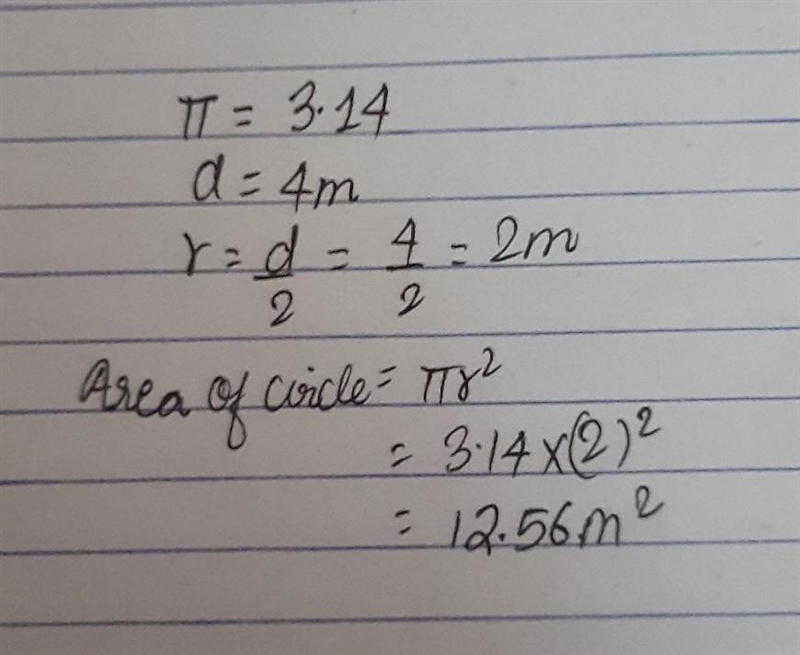 π = 3.14
d = 4m
r = d/2 = 4/2 = 2m
Area of circle = πr²
= 3.14 x (2)²
= 12.56m²